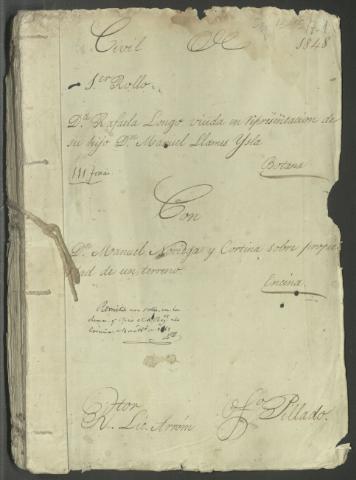 Civil De 1848
1.er Rollo
D.ª Rafaela Longo viuda en representacion de
su hijo D.n Manuel Llames Ysla
111 fojas
Botana
Con
D.n Manuel Noriega y Cortina sobre propie
dad de un terreno
Encina.
R.tor
Lic. Arrón
S.º Pillado.